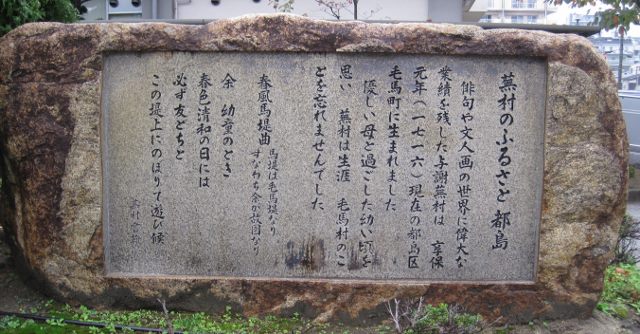 蕪村のふるさと 都島
俳句や文人画の世界に偉大な
業績を残した与謝蕪村は 享保
元年(一七一六)現在の都島区
毛馬町に生まれました
優しい母と過ごした幼い頃を
思い 蕪村は生涯 毛馬村のこ
とを忘れませんでした
春風馬堤曲
馬堤は毛馬堤なり
すなわち余が故園なり
余 幼童のとき
春色清和の日には
必ず友どちと
この堤上にのぼりて遊び候